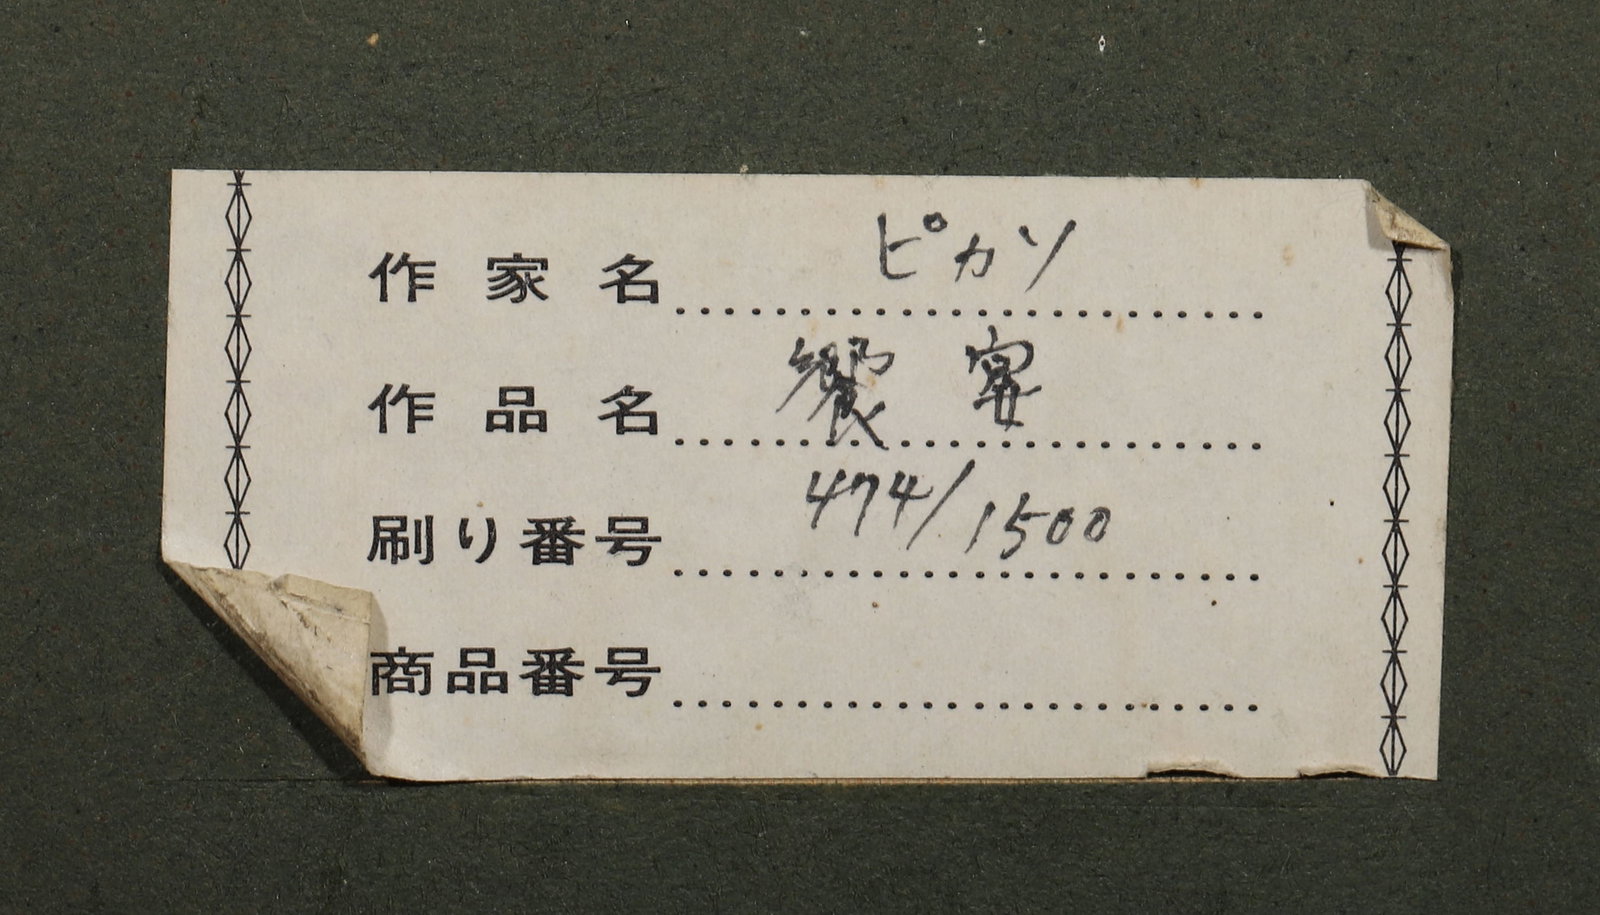 作家名 ピカソ
作品名 饗宴
刷り番号 474/1500
商品番号